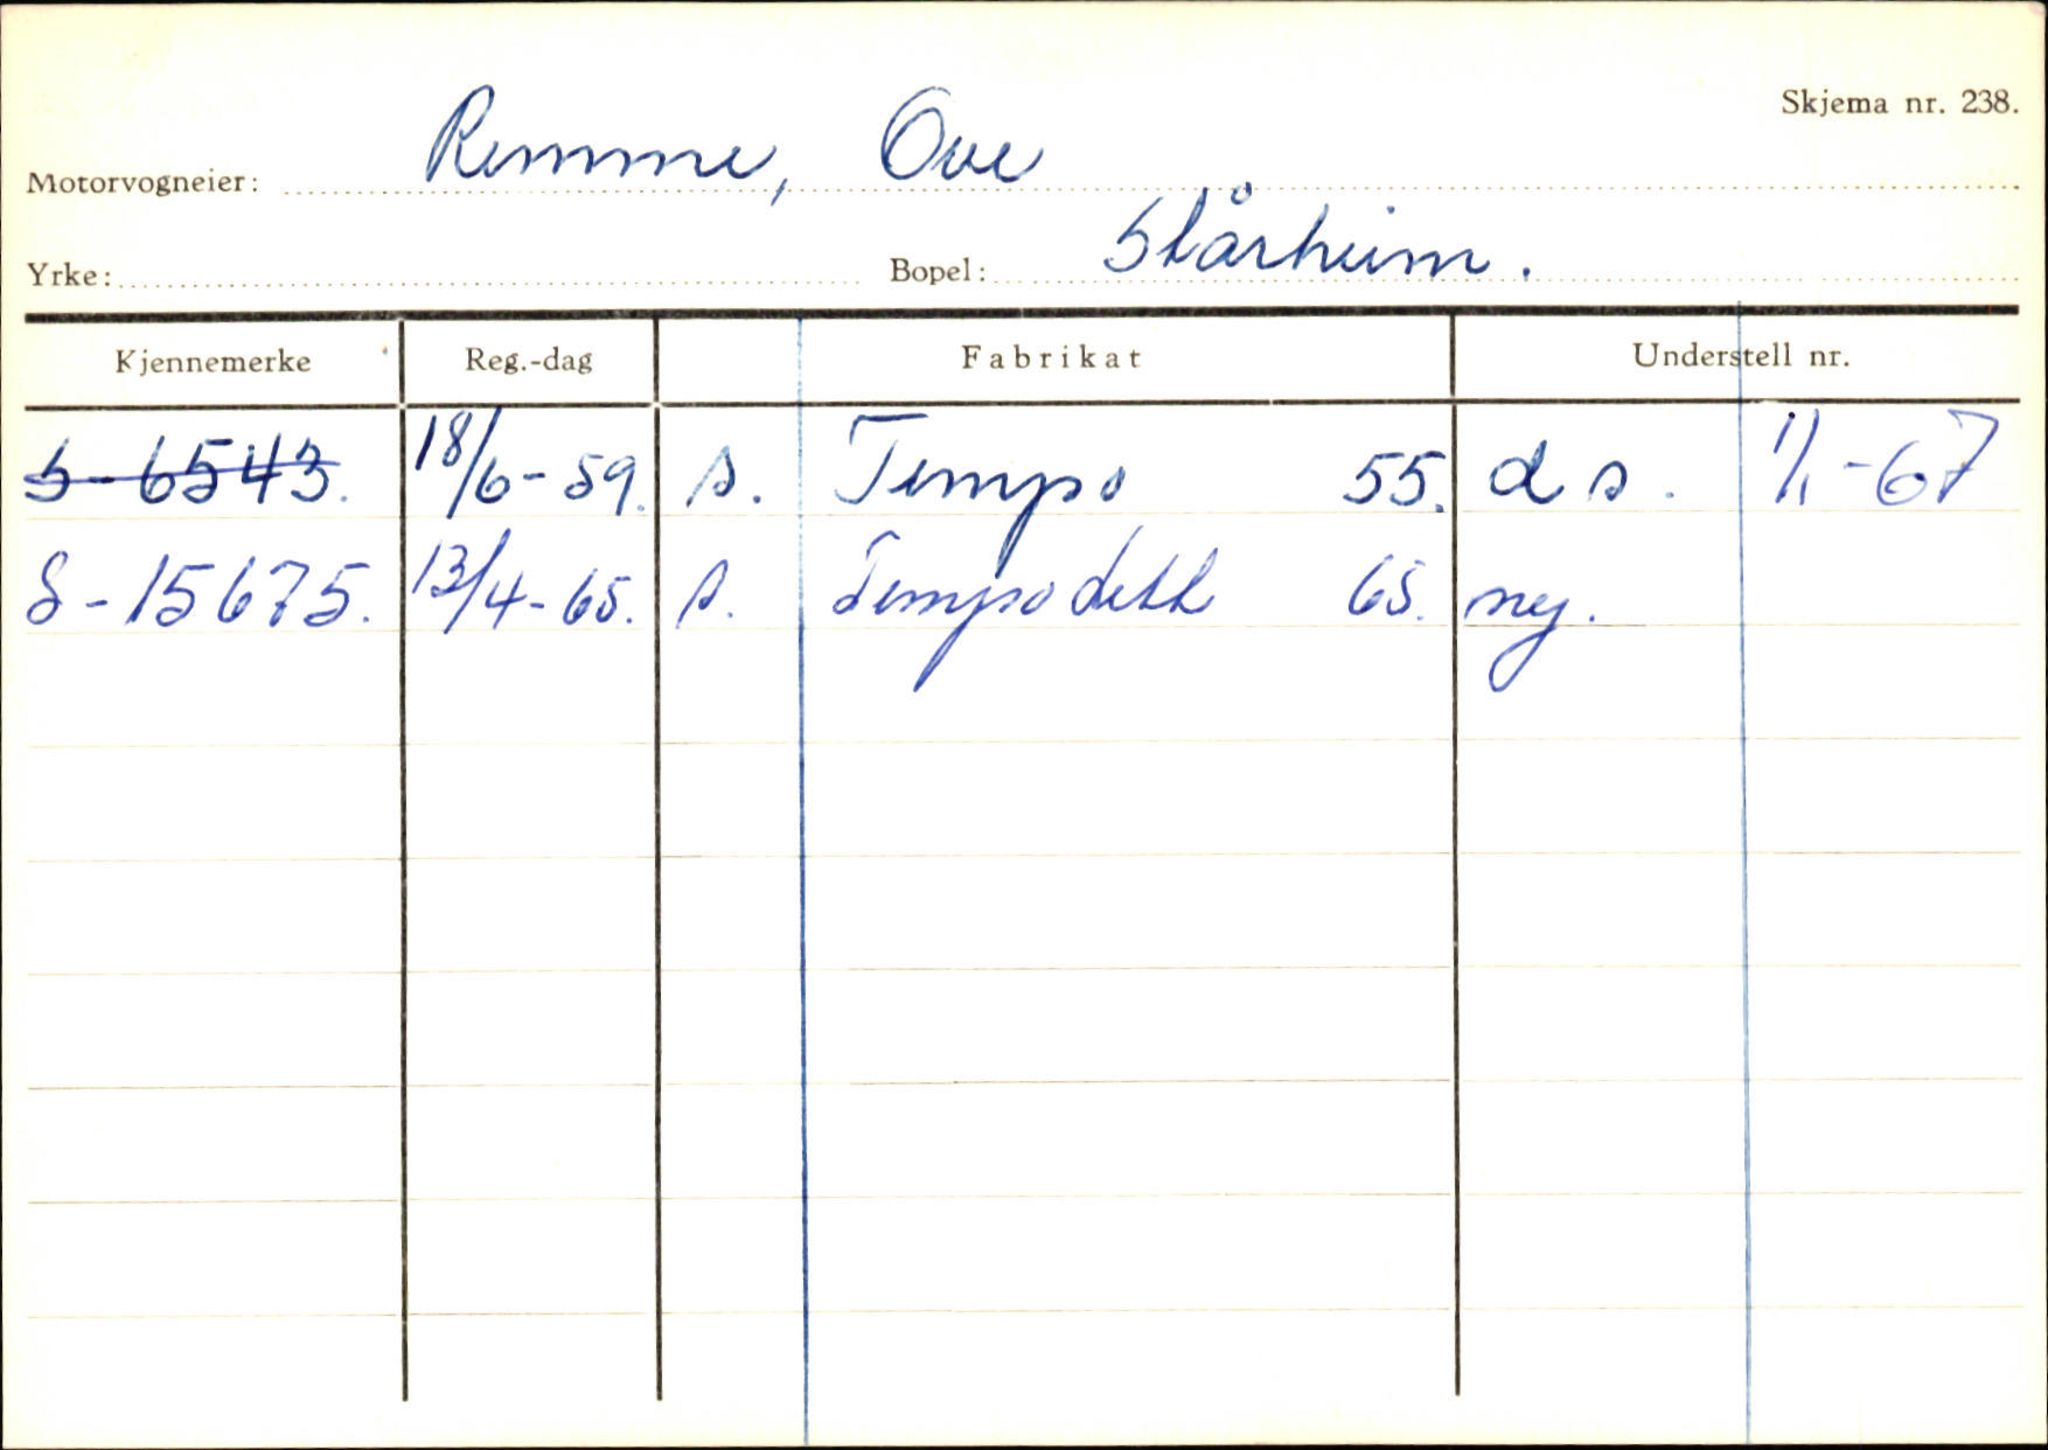 Skjema nr. 238.
Motorvogneier: Remme, Ove
Yrke: Bopel: Stårheim.
Kjennemerke Reg.-dag Fabrikat Understell nr.
S-6543. 18/6-59. s. Tempo 55. d s. 1/1-67
S-15675. 13/4-65. s. Tempo Lett 65. ny.